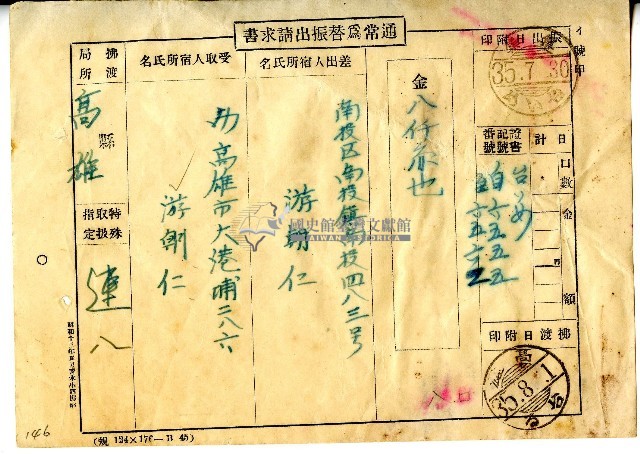 通常為替振出請求書
振出日附印
35.7.30
金
八仟元也
證書記號番號
日計
口數
金額
台
自六五五五
至六五
差出人宿所氏名
南投区南投鎮南投四八三号
游朝仁
受取人宿所氏名
高雄市大港埔二八六
游朝仁
拂渡局所
高雄
縣
特殊取扱指定
連八
拂渡日附印
高
35.8.1
國史館臺灣文獻館
TAIWAN HISTORICA
(規 124×176—B 45)
146